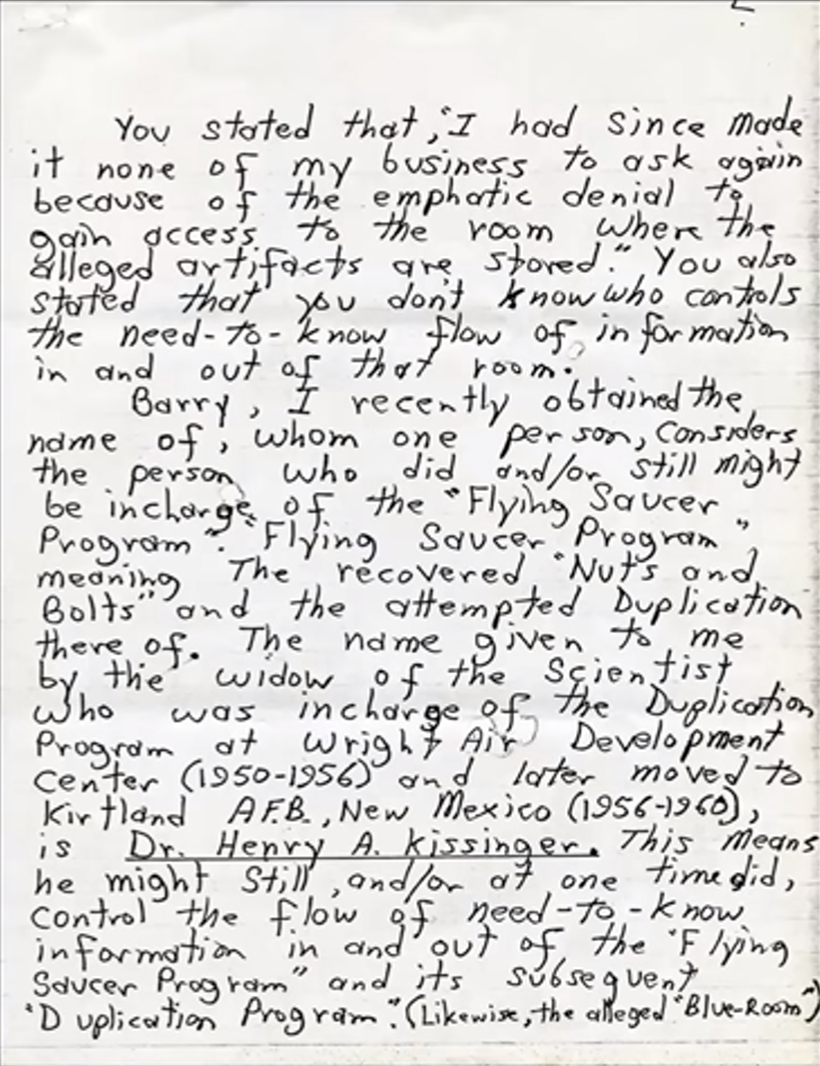 You stated that, "I had since made
it none of my business to ask again
because of the emphatic denial to
gain access to the room where the
alleged artifacts are stored." You also
stated that you don't know who controls
the need-to-know flow of information
in and out of that room.
Barry, I recently obtained the
name of, whom one person, considers
the person who did and/or still might
be incharge of the "Flying Saucer
Program". "Flying Saucer Program"
meaning The recovered "Nuts and
Bolts" and the attempted Duplication
there of. The name given to me
by the widow of the Scientist
who was incharge of the Duplication
Program at Wright Air Development
Center (1950-1956) and later moved to
Kirtland A.F.B., New Mexico (1956-1960),
is Dr. Henry A. Kissinger. This means
he might Still, and/or at one time did,
control the flow of need-to-know
information in and out of the "Flying
Saucer Program" and its subsequent
"Duplication Program". (Likewise, the alleged "Blue-Room")